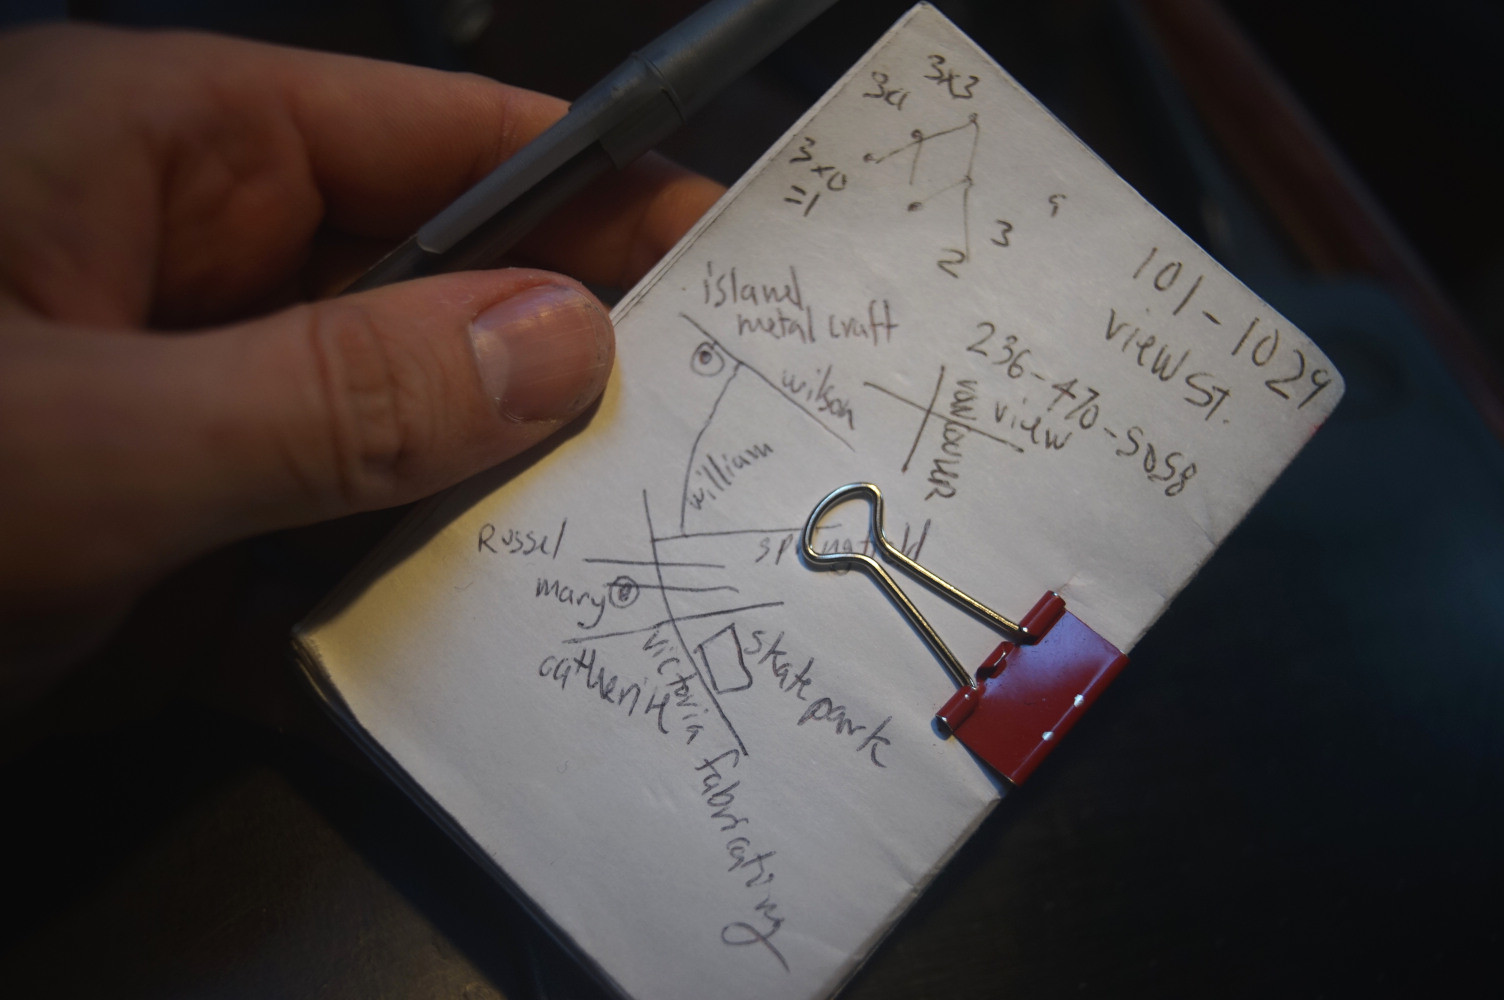 3x3
3a
3x0
=1
a
3
2
101-1029
view St.
236-470-5058
view
vancouver
island
metal craft
wilson
william
springfield
Russel
mary
catherine
victoria fabricating
skate park